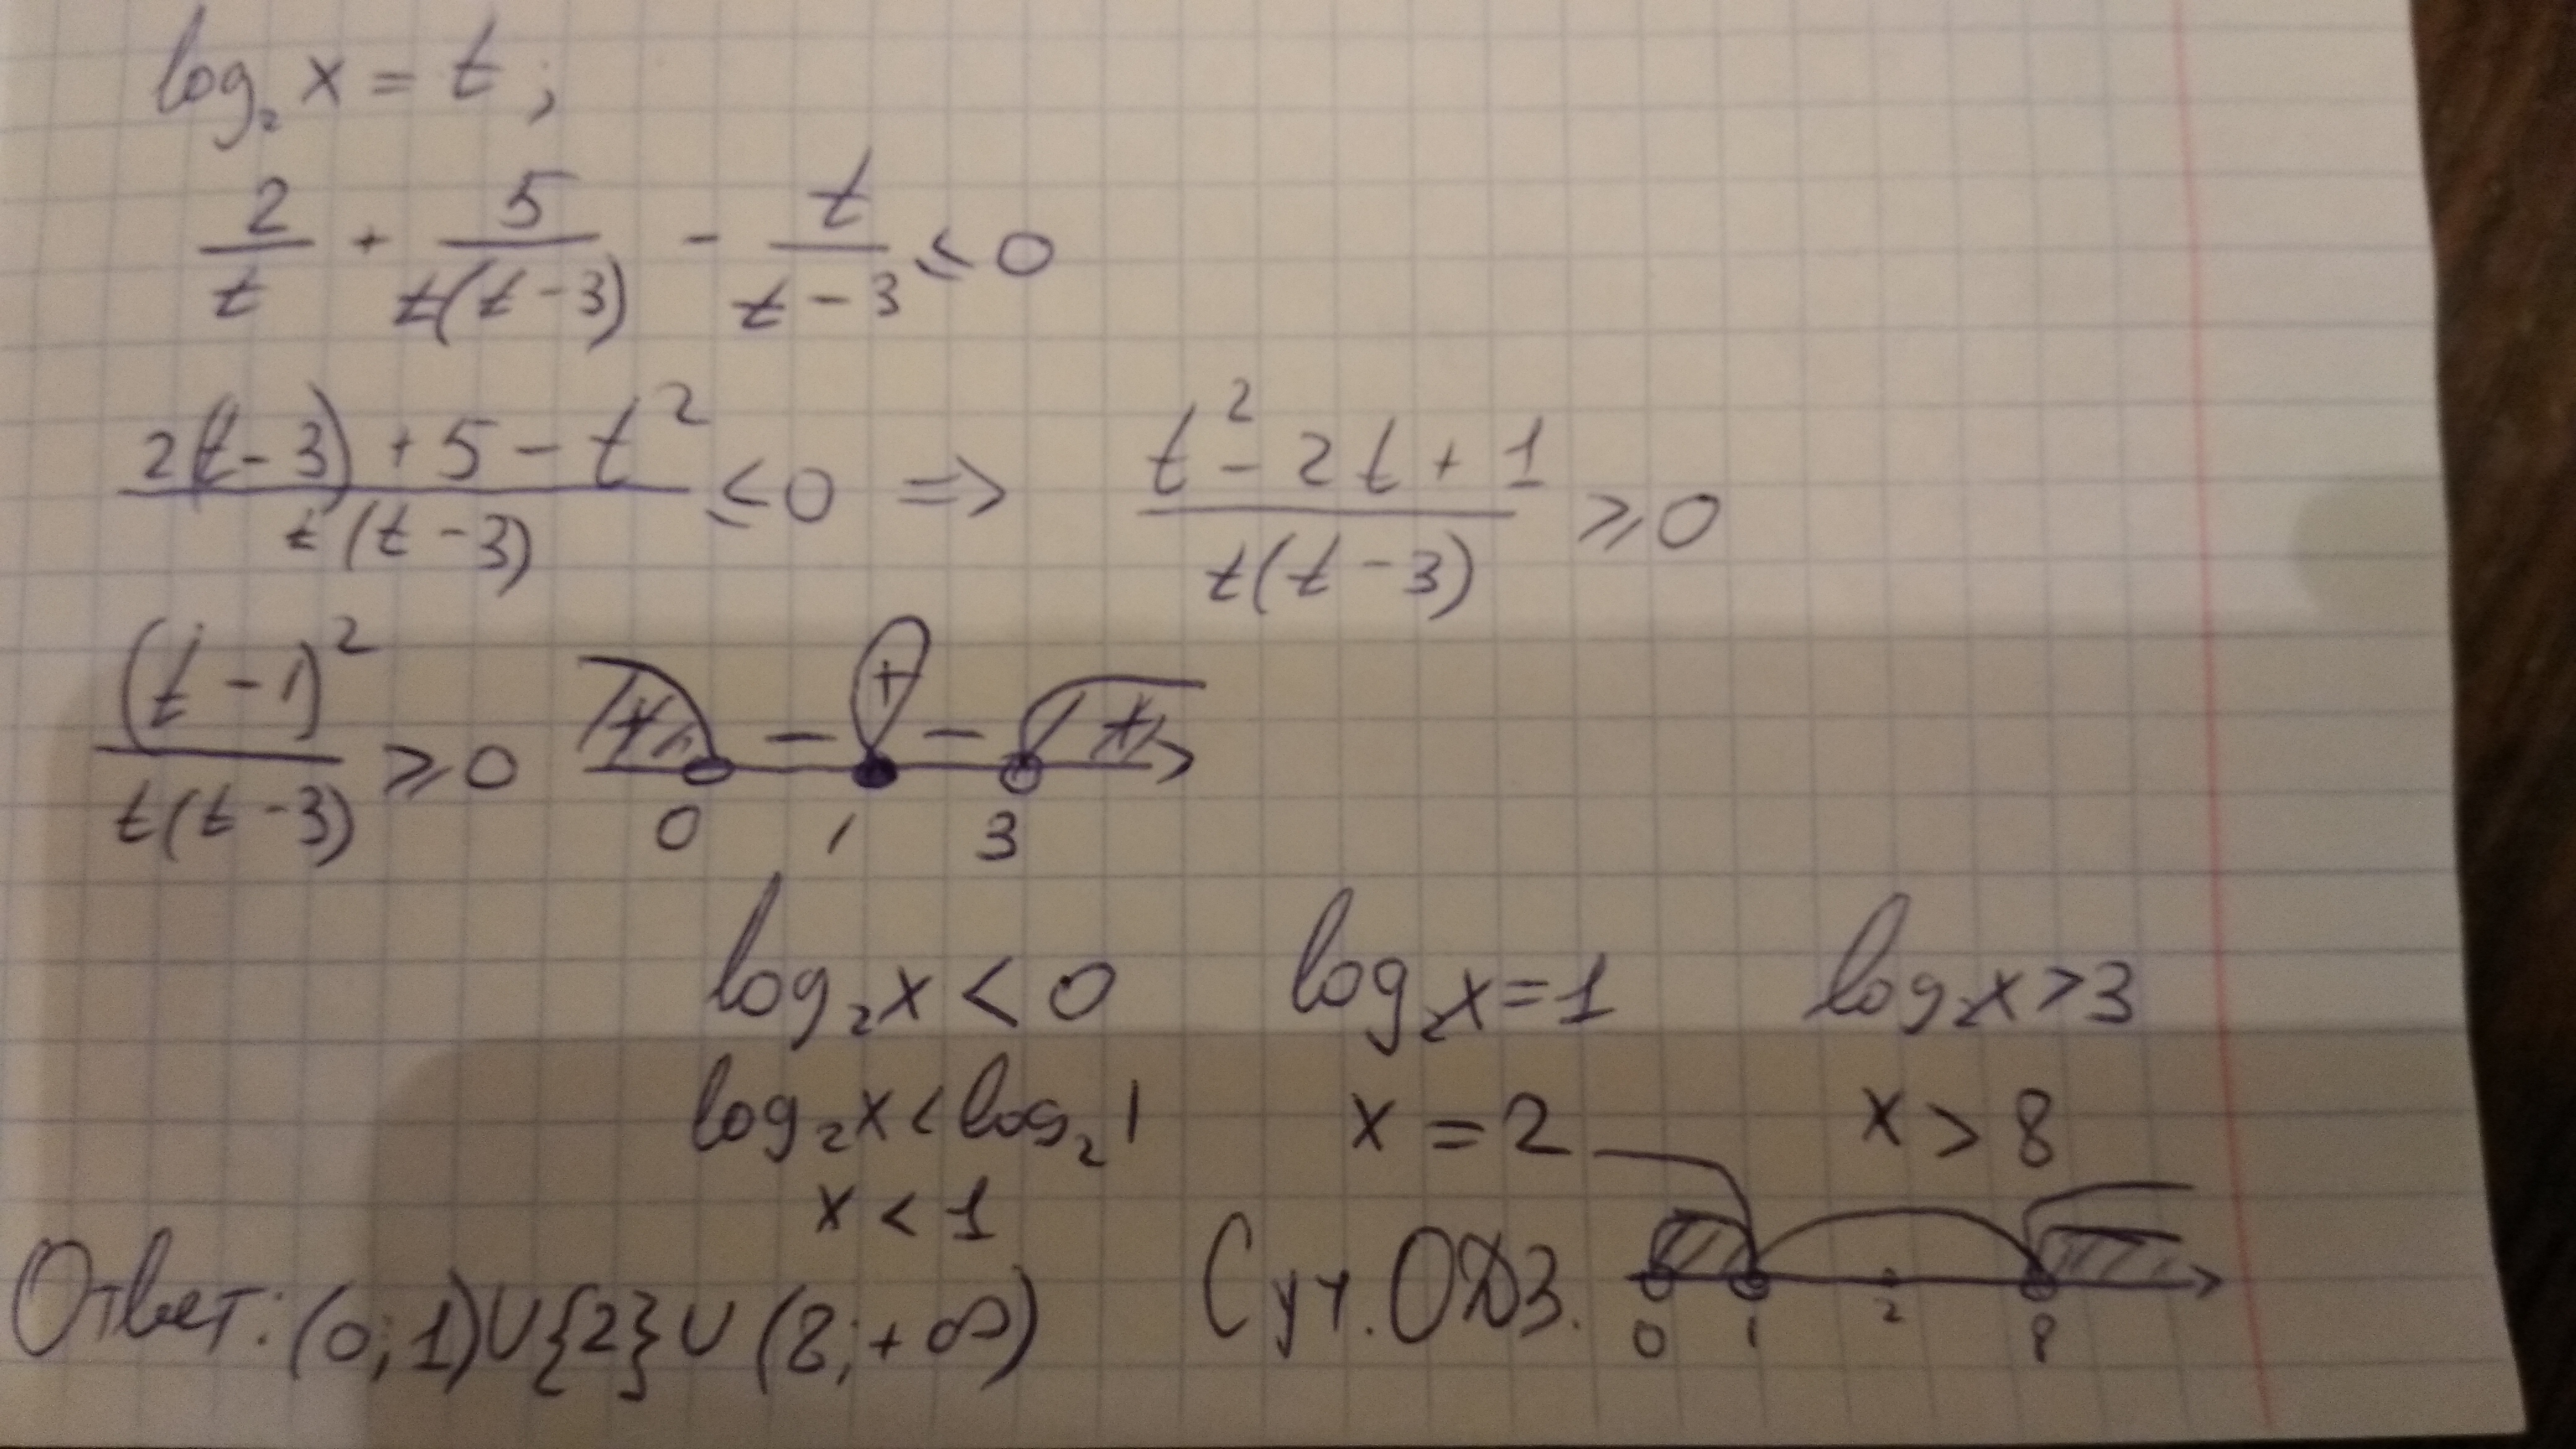 log₂ x = t ;
2/t + 5/(t(t-3)) - t/(t-3) ≤ 0
(2(t-3) + 5 - t²)/(t(t-3)) ≤ 0 => (t² - 2t + 1)/(t(t-3)) ≥ 0
(t-1)²/(t(t-3)) ≥ 0 + - + - +
0 1 3
log₂x < 0 log₂x = 1 log₂x > 3
log₂x < log₂1 x = 2 x > 8
x < 1
Ответ: (0; 1) ∪ {2} ∪ (8; +∞) С уч. ОДЗ. 0 1 2 8